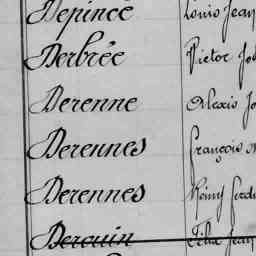 Depincé Louis Jean
Derbrée Victor
Derenne Alexis
Derennes François
Derennes Rémy
Derouin Félix Jean